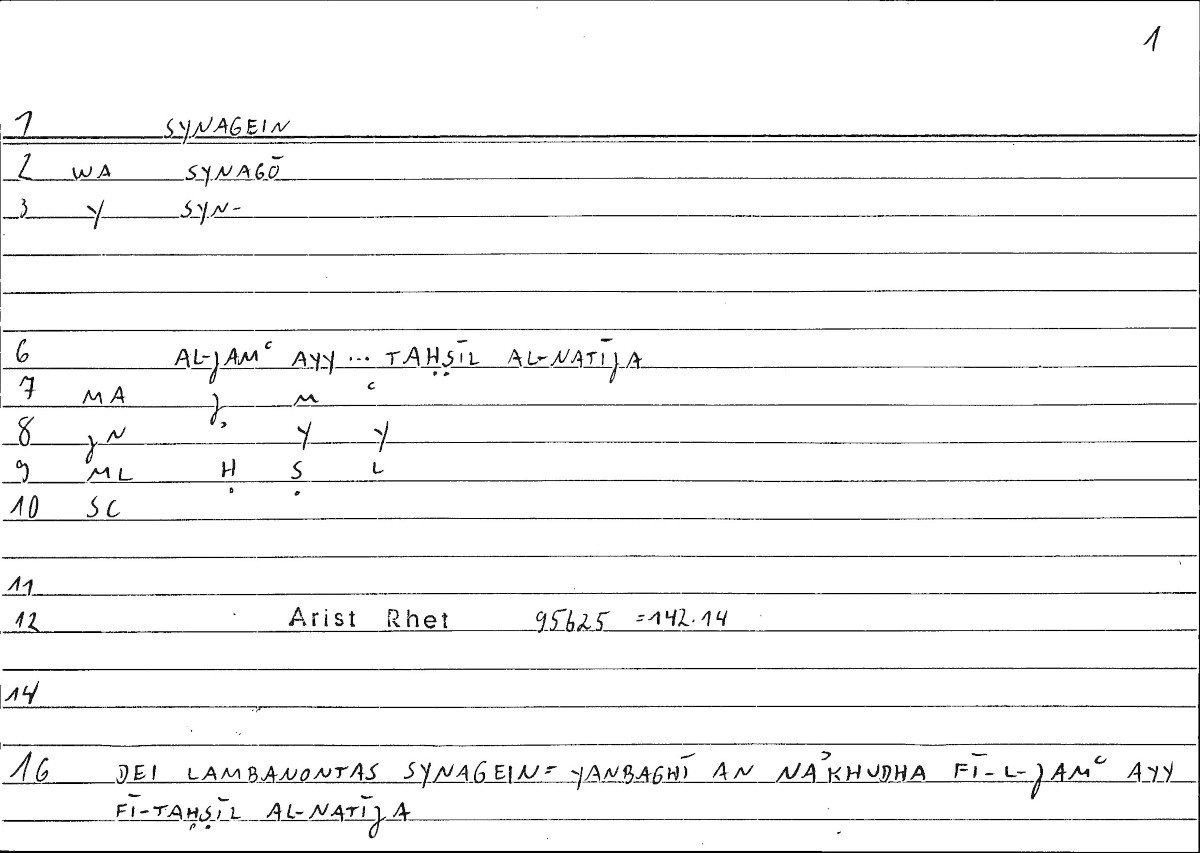 1
1 SYNAGEIN
2 WA SYNAGŌ
3 Y SYN-
6 AL-JAMʿ AYY ... TAḤṢĪL AL-NATĪJA
7 MA J M ʿ
8 JN Y Y
9 ML Ḥ Ṣ L
10 SC
11
12 Arist Rhet 95625 =142.14
14
16 DEI LAMBANONTAS SYNAGEIN= YANBAGHĪ AN NAʾKHUDHA FĪ-L-JAMʿ AYY
FĪ-TAḤṢĪL AL-NATĪJA